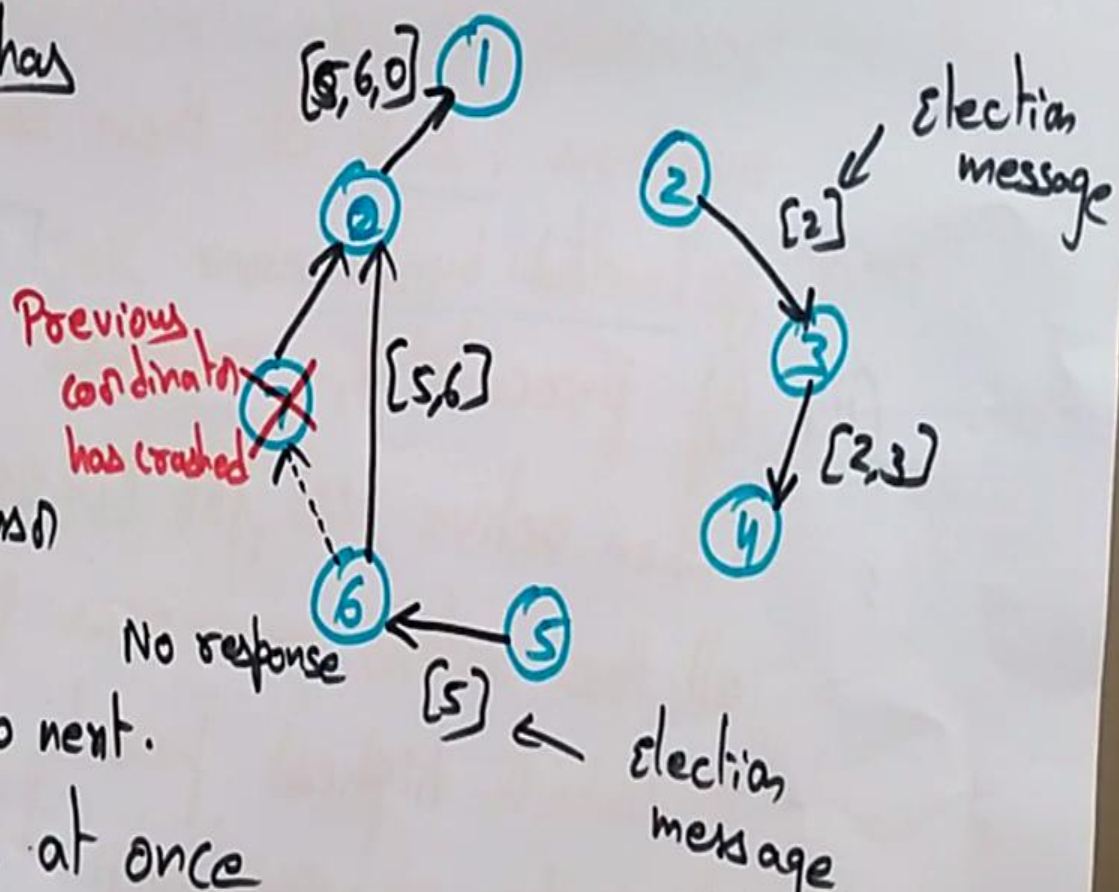 has
[5,6,0]
1
Election
message
2
[2]
0
Previous
cordinator
has crashed
7
[5,6]
3
[2,3]
4
6
5
No response
[5]
next.
Election
message
at once